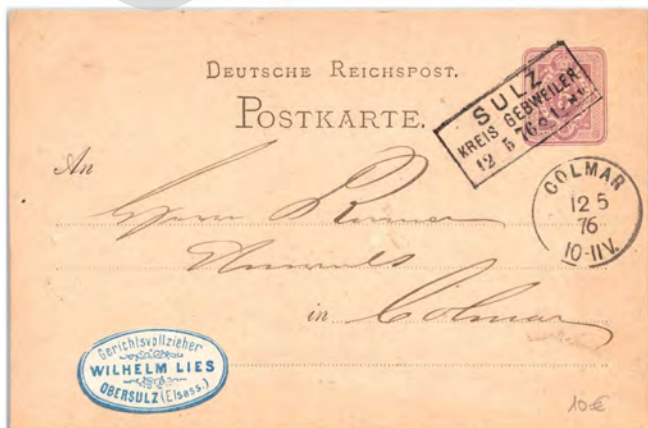 DEUTSCHE REICHSPOST.
POSTKARTE.
SULZ
KREIS GEBWEILER
12 5 76
An
COLMAR
12 5
76
10-11V.
Herrn
Anwalt
in Colmar
Gerichtsvollzieher
WILHELM LIES
OBERSULZ (Elsass.)
10 €